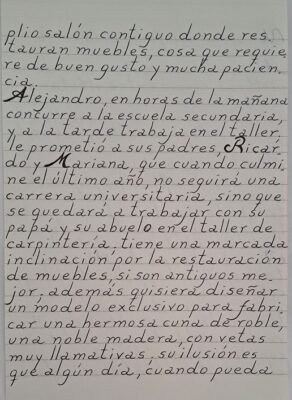 plio salón contiguo donde res
tauran muebles, cosa que requie
re de buen gusto y mucha pacien
cia.
Alejandro, en horas de la mañana
conturre a la escuela secundaria,
y a la tarde trabaja en el taller,
le prometió a sus padres, Ricar
do y Mariana, que cuando culmi
ne el último año, no seguirá una
carrera universitaria, sino que
se quedará a trabajar con su
papá y su abuelo en el taller de
carpintería, tiene una marcada
inclinación por la restauración
de muebles, si son antiguos me
jor, además quisiera diseñar
un modelo exclusivo para fabri
car una hermosa cuna de roble,
una noble madera, con vetas
muy llamativas, su ilusión es
que algún día, cuando pueda